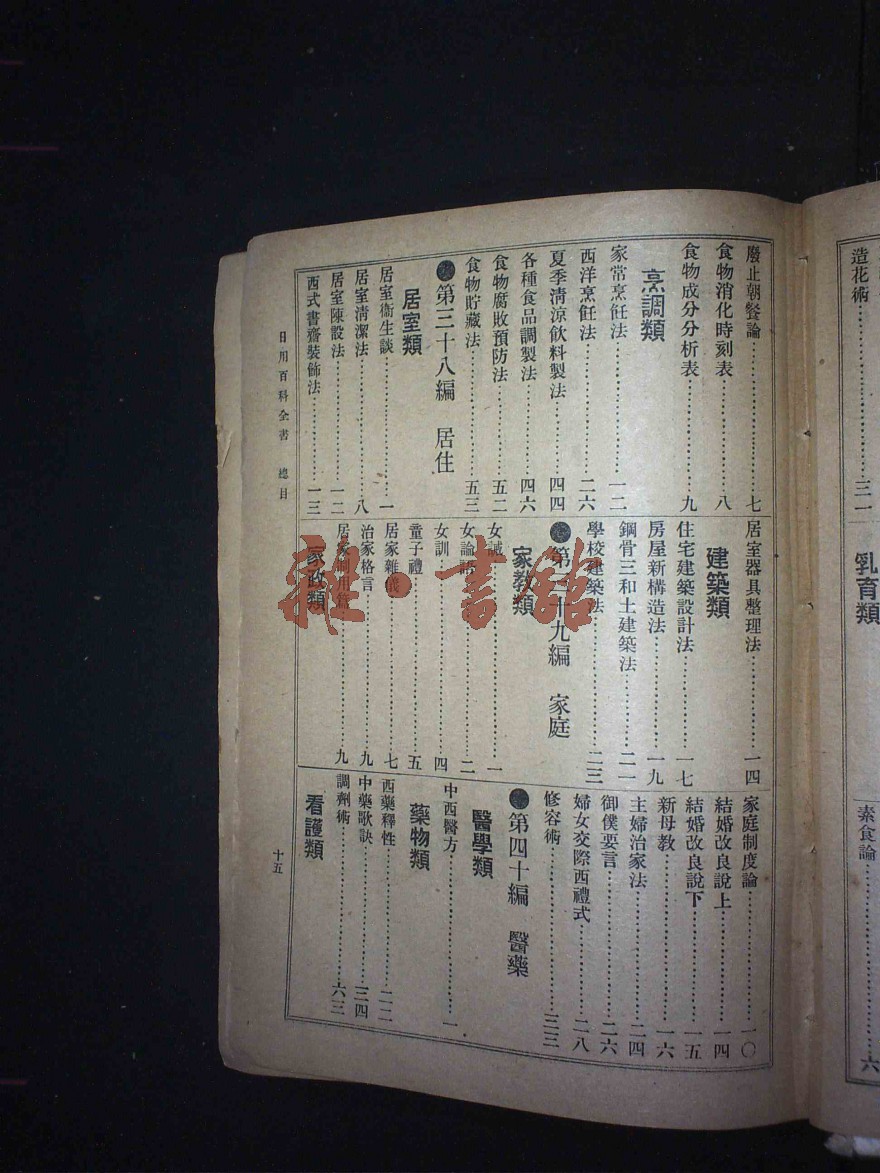 廢止朝餐論……七
食物消化時刻表……八
食物成分分析表……九
烹調類
家常烹飪法……一二
西洋烹飪法……二六
夏季清涼飲料製法……四四
各種食品調製法……四六
食物腐敗預防法……五二
食物貯藏法……五三
第三十八編 居住
居室類
居室衞生談……一
居室清潔法……八
居室陳設法……一二
西式書齋裝飾法……一三
居室器具整理法……一四
建築類
住宅建築設計法……一七
房屋新構造法……一九
鋼骨三和土建築法……二一
學校建築法……二三
第三十九編 家庭
家教類
女誡……一
女論語……二
女訓……四
童子禮……五
居家雜儀……七
治家格言……九
居家制用篇……九
家政類
家庭制度論……一〇
結婚改良說上……一四
結婚改良說下……一五
新母教……一六
主婦治家法……二四
御僕要言……二六
婦女交際西禮式……二八
修容術……三三
第四十編 醫藥
醫學類
中西醫方……一
藥物類
西藥釋性……二二
中藥歌訣……三四
調劑術……六三
看護類
日用百科全書 總目
十五
造花術……三一
乳育類
素食論……六
雜·書館